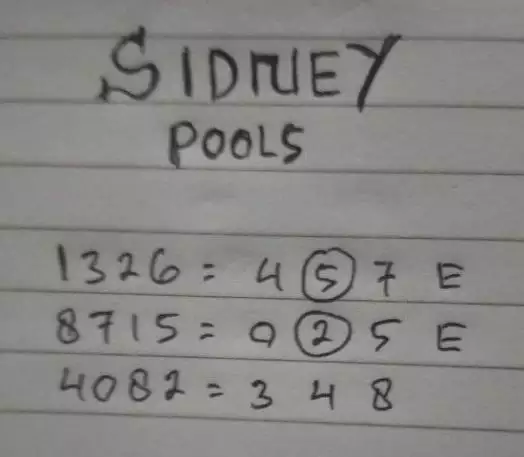 SIDNEY
POOLS
1326 = 4 5 7 E
8715 = 0 2 5 E
4082 = 3 4 8